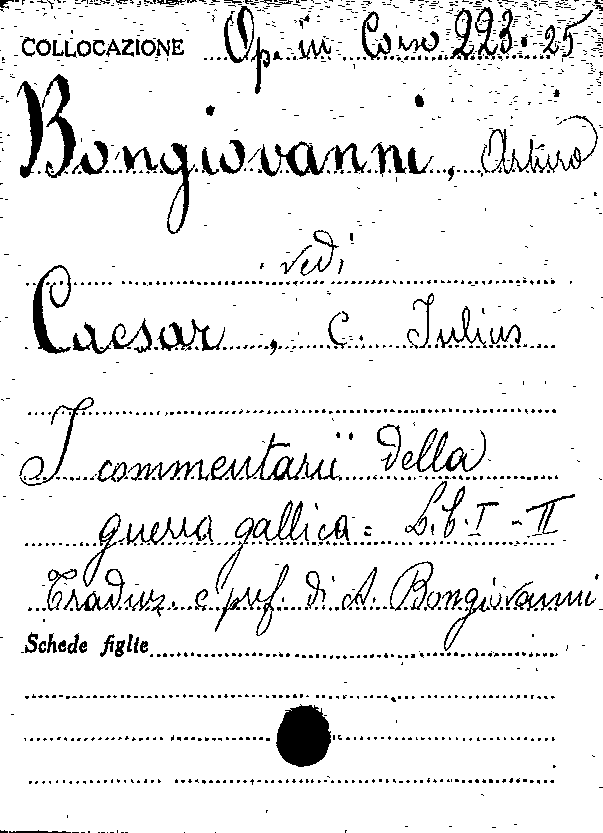 COLLOCAZIONE Op. in Corso 223.25
Bongiovanni, Arturo
vedi
Caesar, C. Julius
I commentarii della
guerra gallica: Lib. I - II
Traduz. e pref. di A. Bongiovanni
Schede figlie